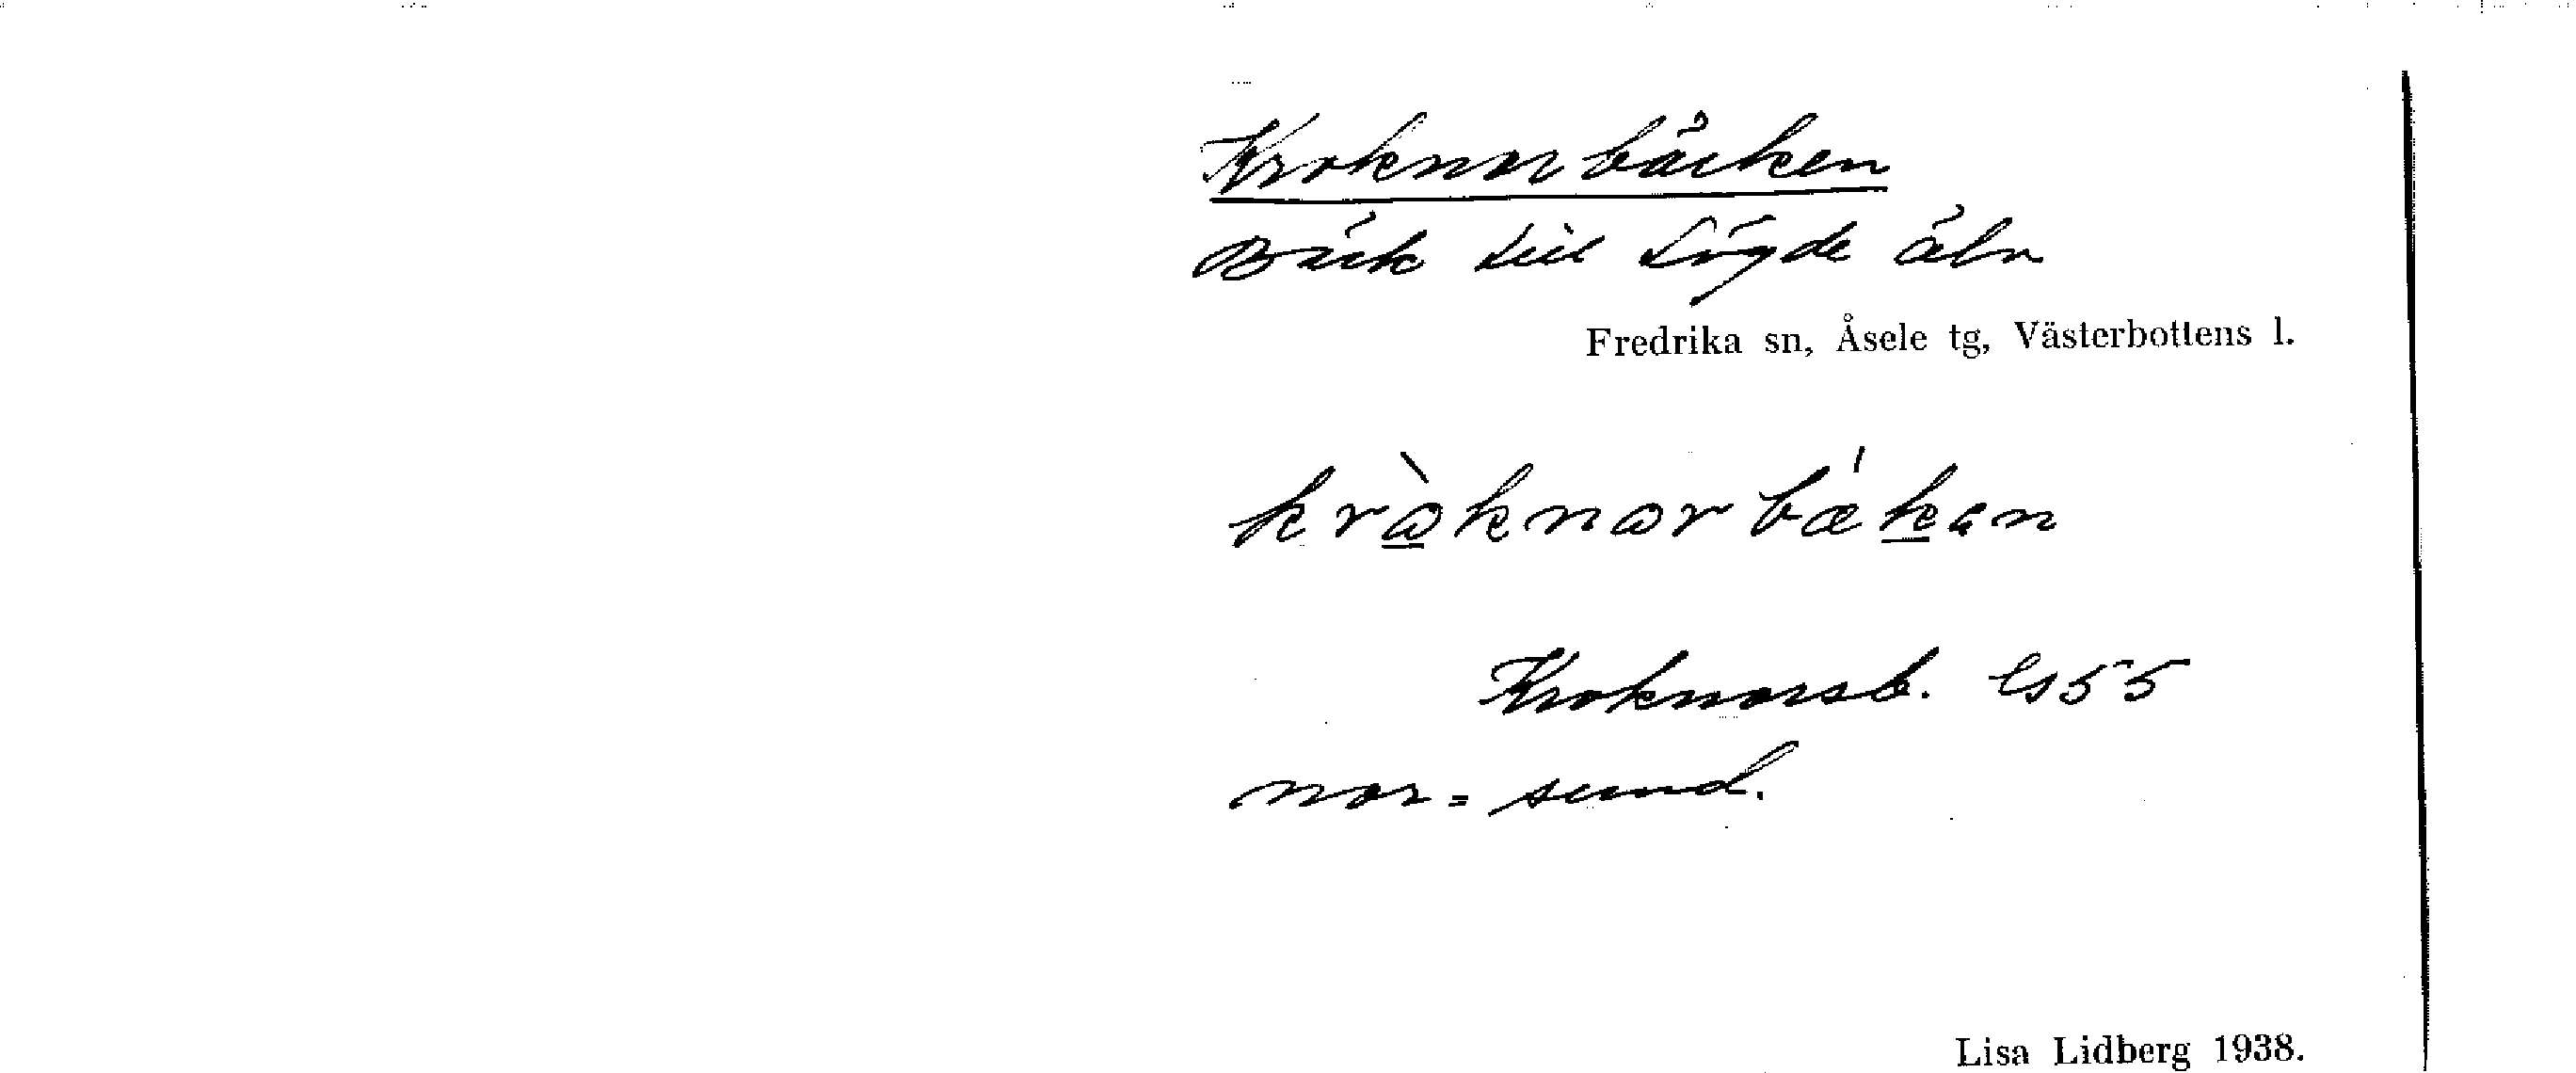 Kroknorbäcken
Bäck till Lögde älv
Fredrika sn, Åsele tg, Västerbottens l.
kròknorbǽkan
Kroknorsb. Gs 55
nor = sund.
Lisa Lidberg 1938.